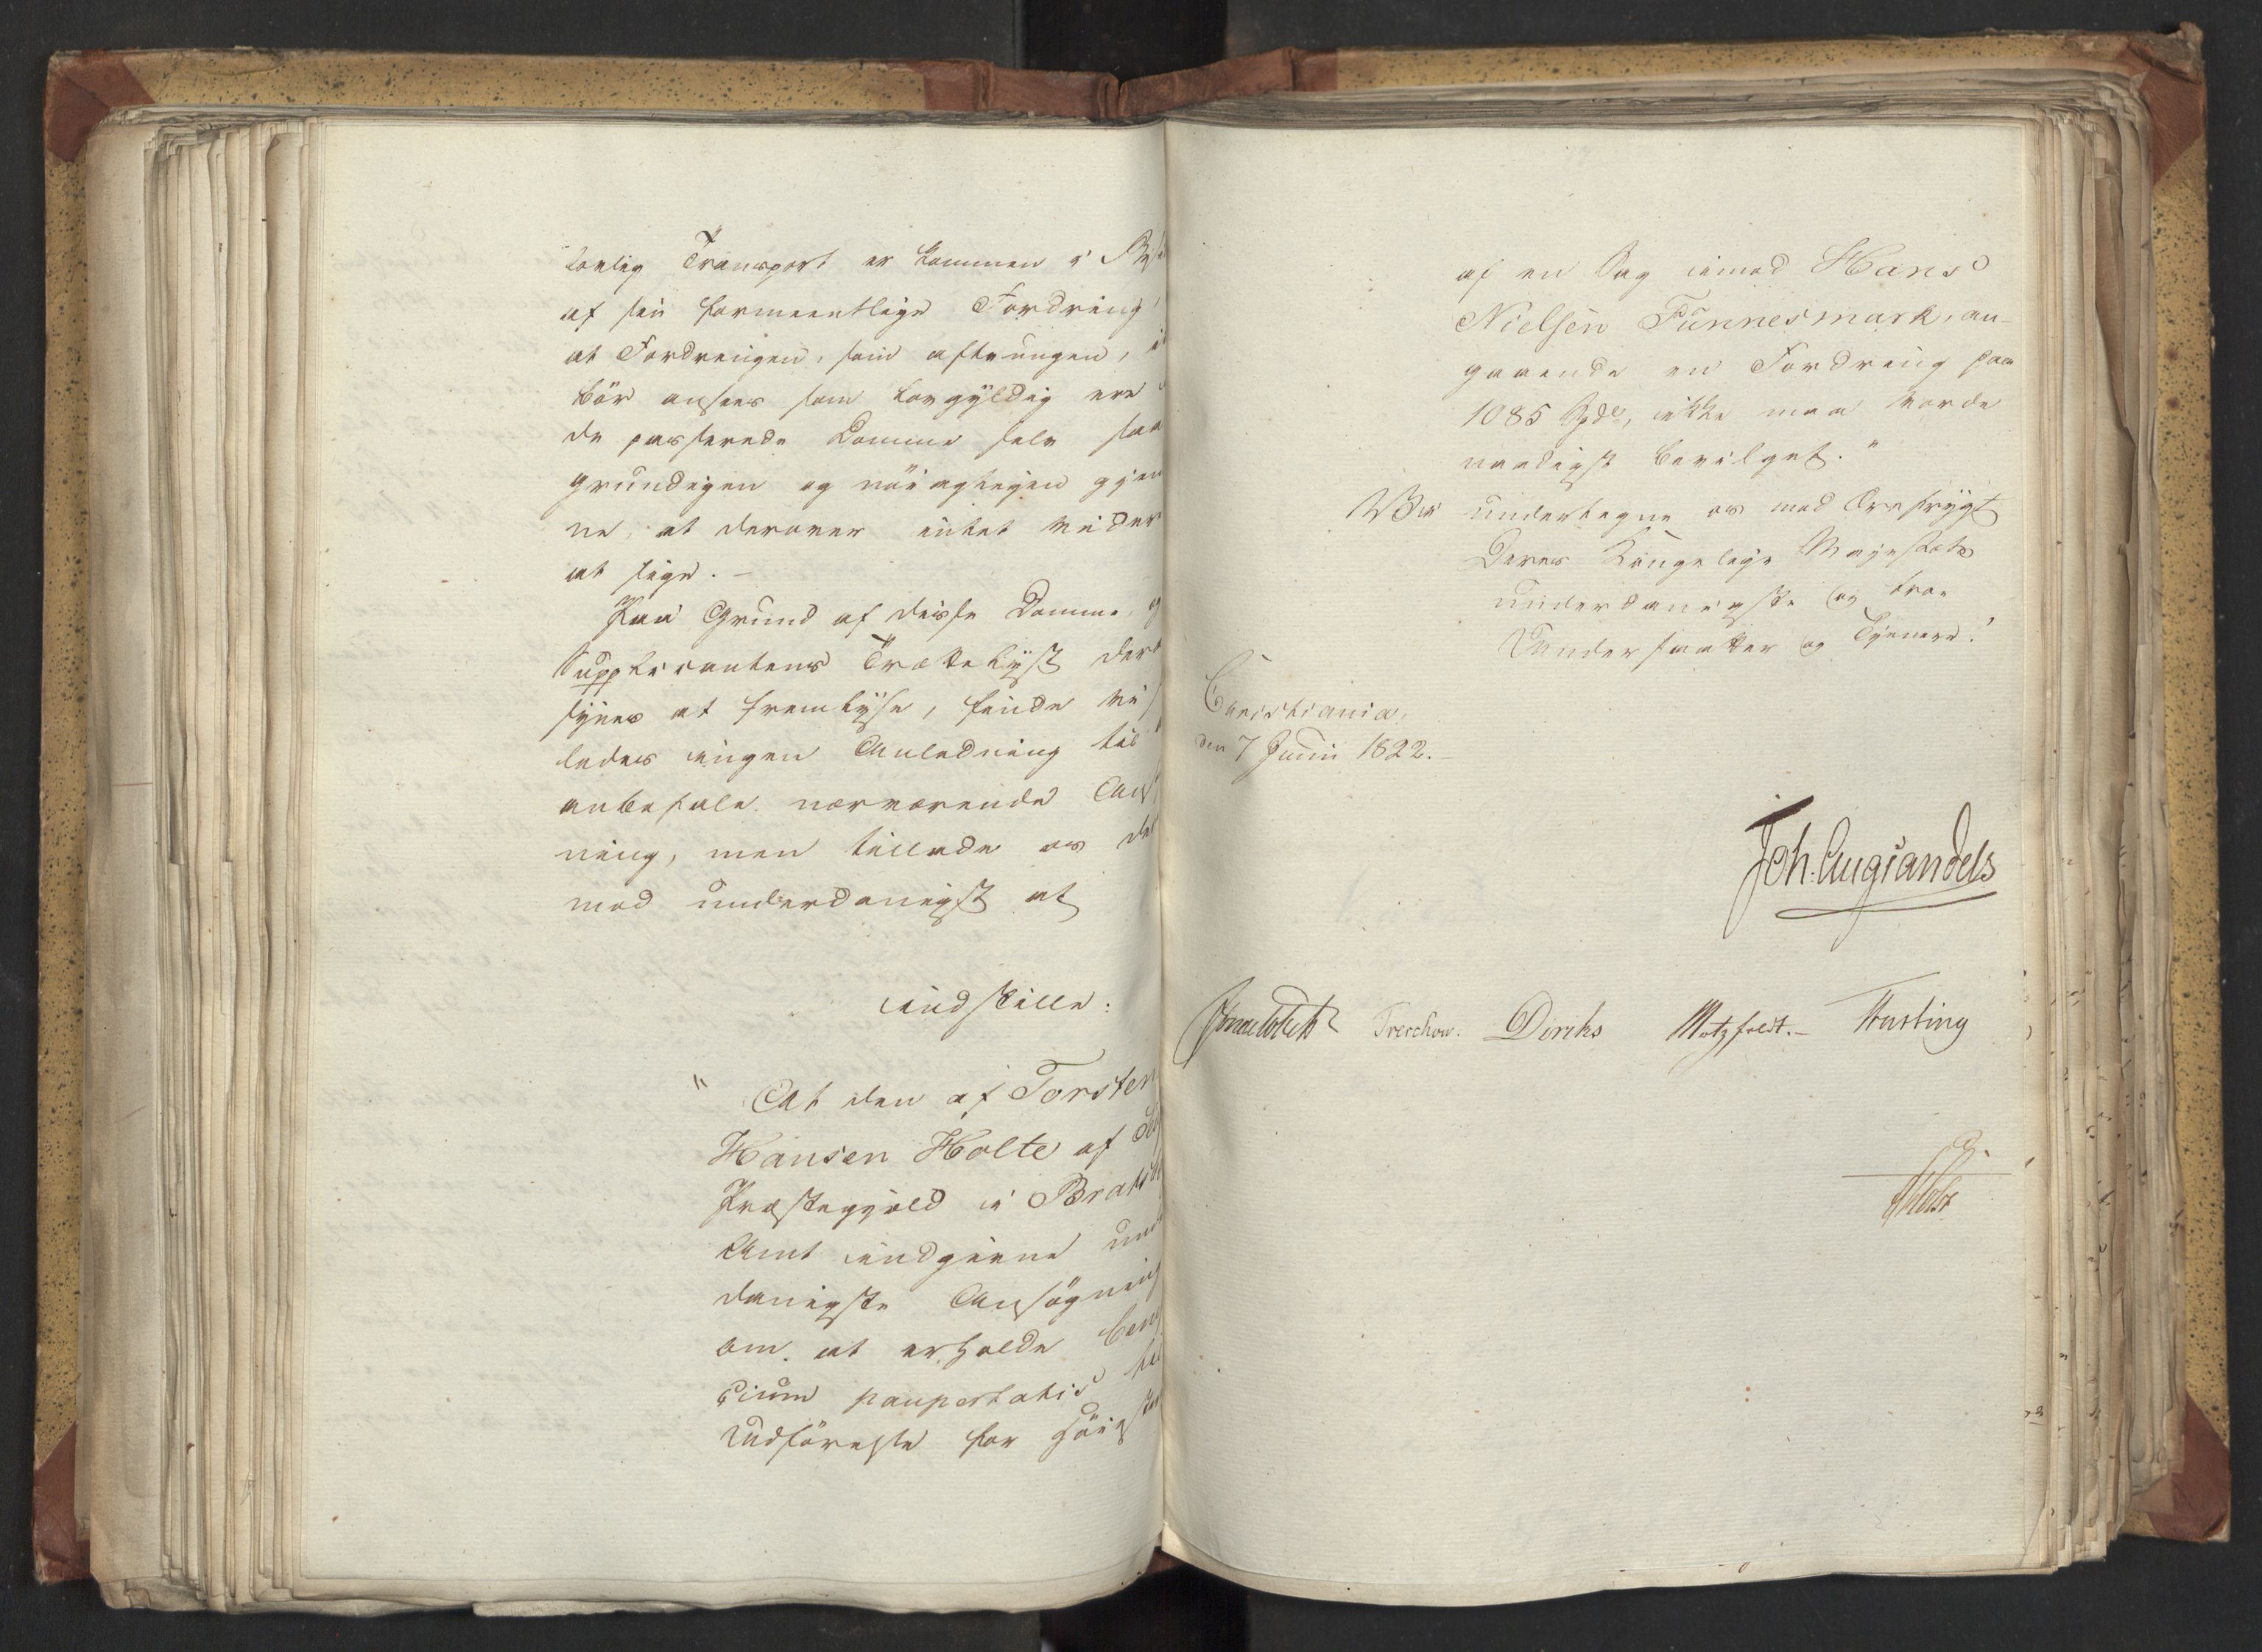 lovlig Transport er kommen i
af sin formeentlige Fordring
at Fordringen, som aftvungen,
bör ansees som lovgyldig ere
de passerede Domme selv saa
grundigen og nöiagtigen
ne, at derover intet videre
at sige. —
Paa Grund af disse Domme, og
Supplicantens Trættelyst der
synes at fremlyse, finde vi
ledes ingen Anledning til
anbefale nærværende Ans
ning, men tillade os der
med underdanigst at
indstille:
" At den af Torsten
Hansen Holte af
Præstegjeld i Bratsb
Amt indgivne und
danigste Ansögning
om at erholde bene
ficium paupertatis til
Udförelse for Höieste
af en Sag imod Hans
Nielsen Funnesmark, an-
gaaende en Fordring paa
1085 Spd, ikke maa vorde
naadigst bevilget."
Vi undertegne os med Ærefrygt
Deres Kongelige Majestæts
underdanigste og troe
Undersaatter og Tjenere!
Christiania,
den 7 Junii 1822. —
Joh: Aug: Sandels
Sommerhielm Treschow. Diriks Motzfeldt. — Fasting
Holst